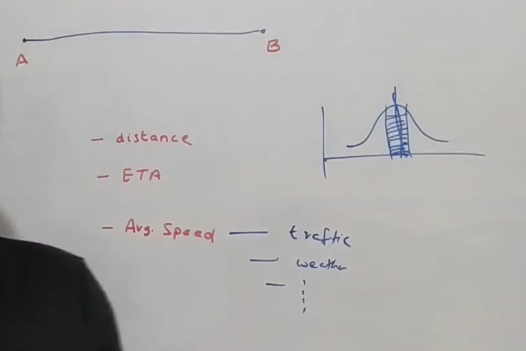 A B
- distance
- ETA
- Avg. Speed — traffic
— weather
—